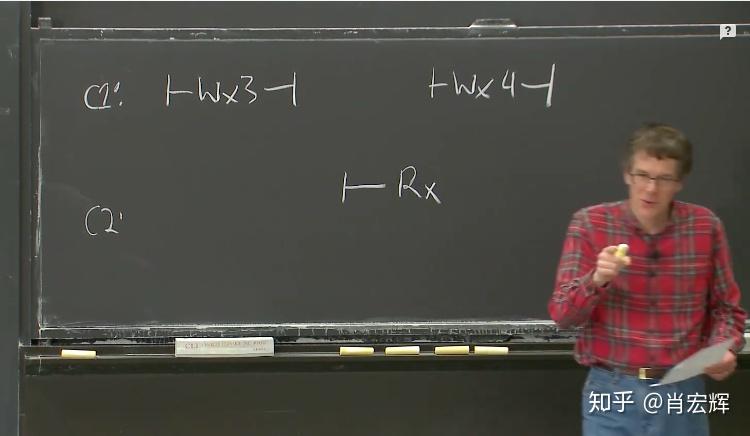 C1: |-Wx3-| |-Wx4-|
|- Rx
C2:
?
知乎 @肖宏辉